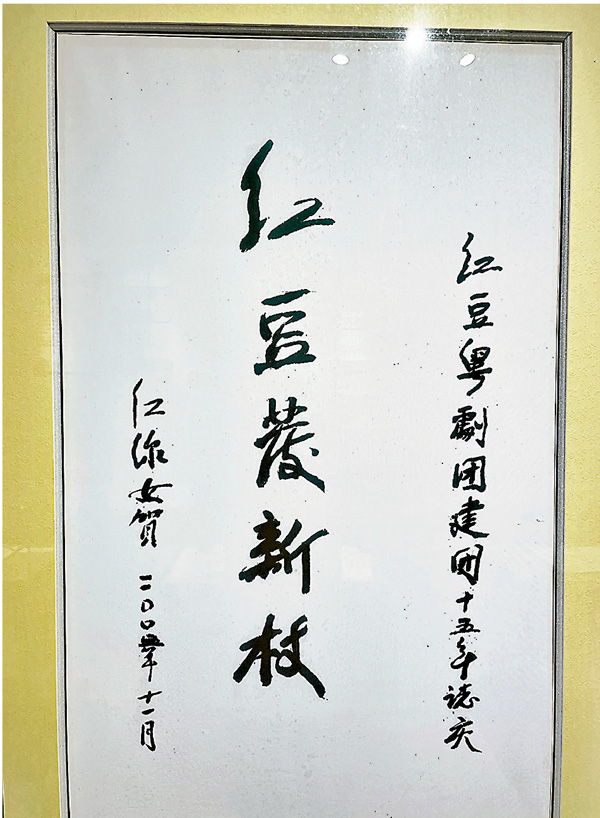 红豆粤劇团建团十五年誌庆
红豆發新枝
红线女賀 二〇〇四年十一月